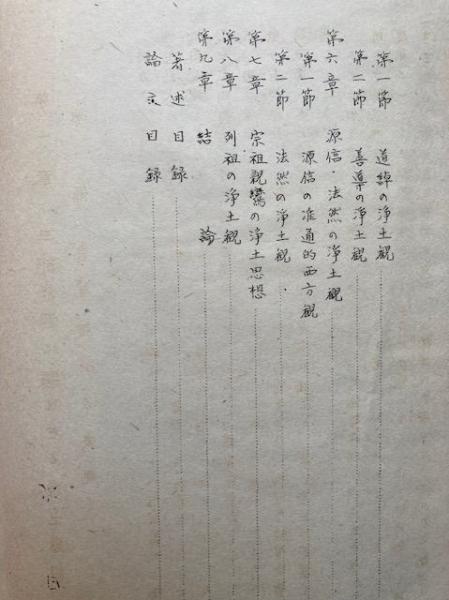 第一節 道綽の浄土観
第二節 善導の浄土観
第六章 源信・法然の浄土観
第一節 源信の准通的西方観
第二節 法然の浄土観
第七章 宗祖親鸞の浄土思想
第八章 列祖の浄土観
第九章 結論
著述目録
論文目録